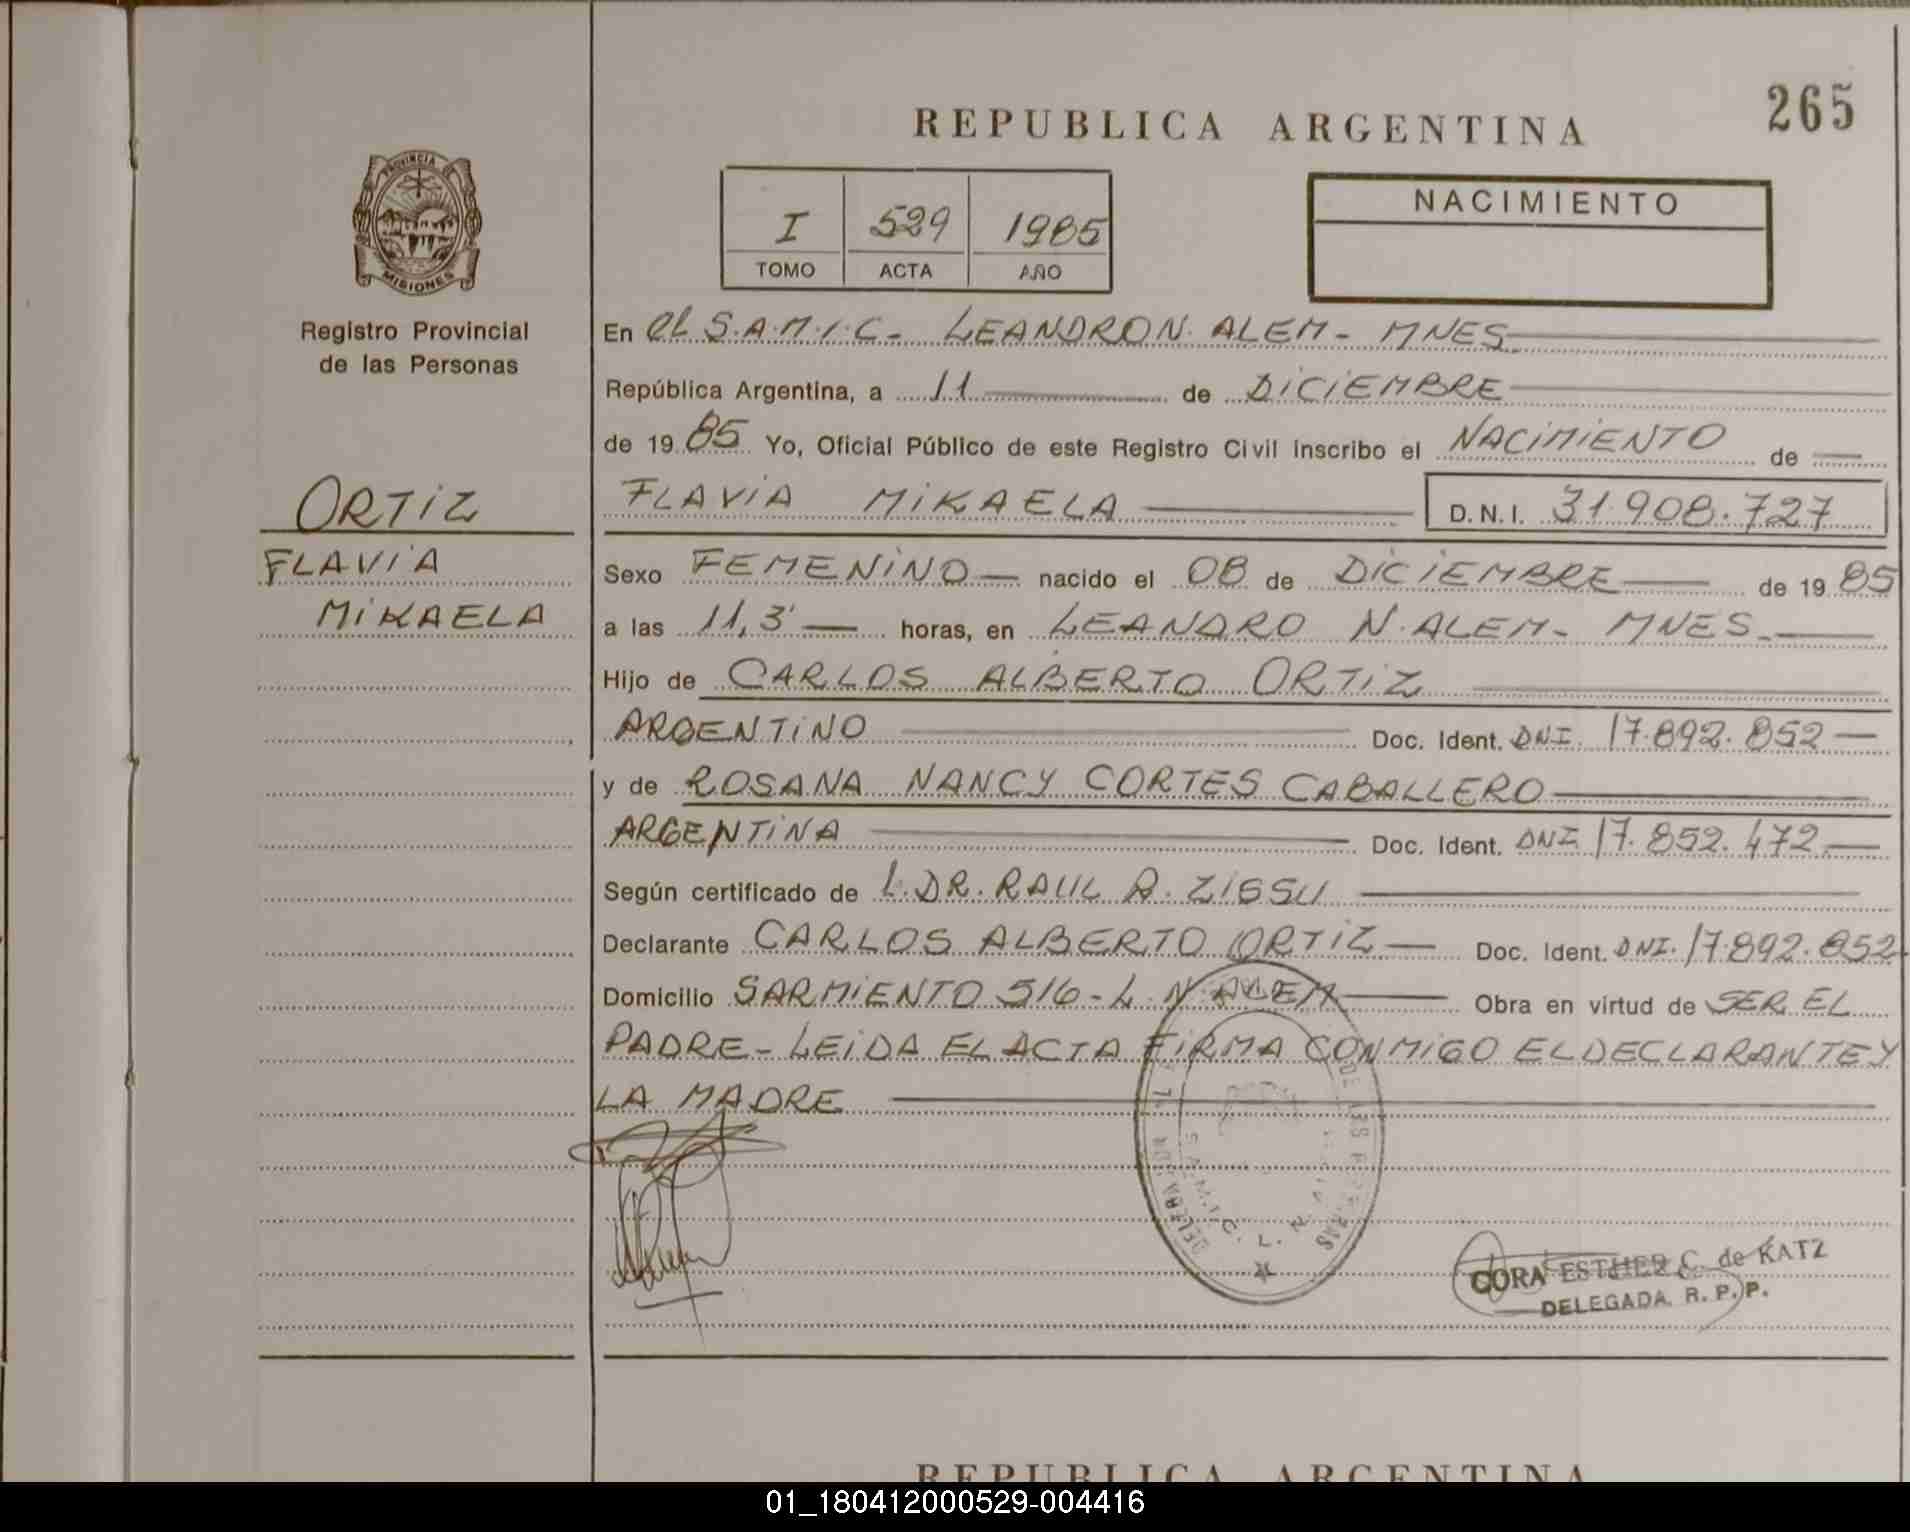 265
REPUBLICA ARGENTINA
PROVINCIA
MISIONES
Registro Provincial
de las Personas
I 529 1985
TOMO ACTA AÑO
NACIMIENTO
ORTIZ
FLAVIA
MIKAELA
En el S.A.M.I.C- LEANDRO N. ALEM- MNES.
República Argentina, a 11 de DICIEMBRE
de 1985 Yo, Oficial Público de este Registro Civil inscribo el NACIMIENTO de
FLAVIA MIKAELA D.N.I. 31.908.727
Sexo FEMENINO nacido el 08 de DICIEMBRE de 1985
a las 11,3' horas, en LEANDRO N. ALEM- MNES.
Hijo de CARLOS ALBERTO ORTIZ
ARGENTINO Doc. Ident. DNI. 17.892.852
y de ROSANA NANCY CORTES CABALLERO
ARGENTINA Doc. Ident. DNI 17.852.472
Según certificado de L. DR. RAUL R. ZISSU
Declarante CARLOS ALBERTO ORTIZ Doc. Ident. DNI. 17.892.852
Domicilio SARMIENTO 516- L. N. ALEM Obra en virtud de SER EL
PADRE- LEIDA EL ACTA FIRMA CONMIGO EL DECLARANTE Y
LA MADRE
S.A.M.I.C. L. N.
CORA ESTHER C. de KATZ
DELEGADA R. P. P.
REPUBLICA ARGENTINA
01_180412000529-004416